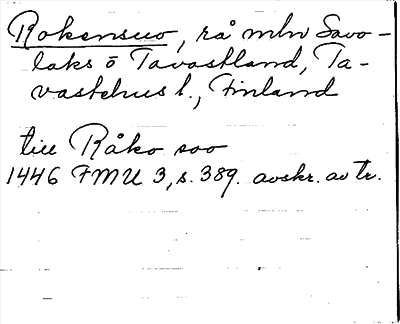 Rokensuo, rå mln Savo-
laks o Tavastland, Ta-
vastehus l., Finland
till Råko soo
1446 FMU 3, s. 389. avskr. av tr.